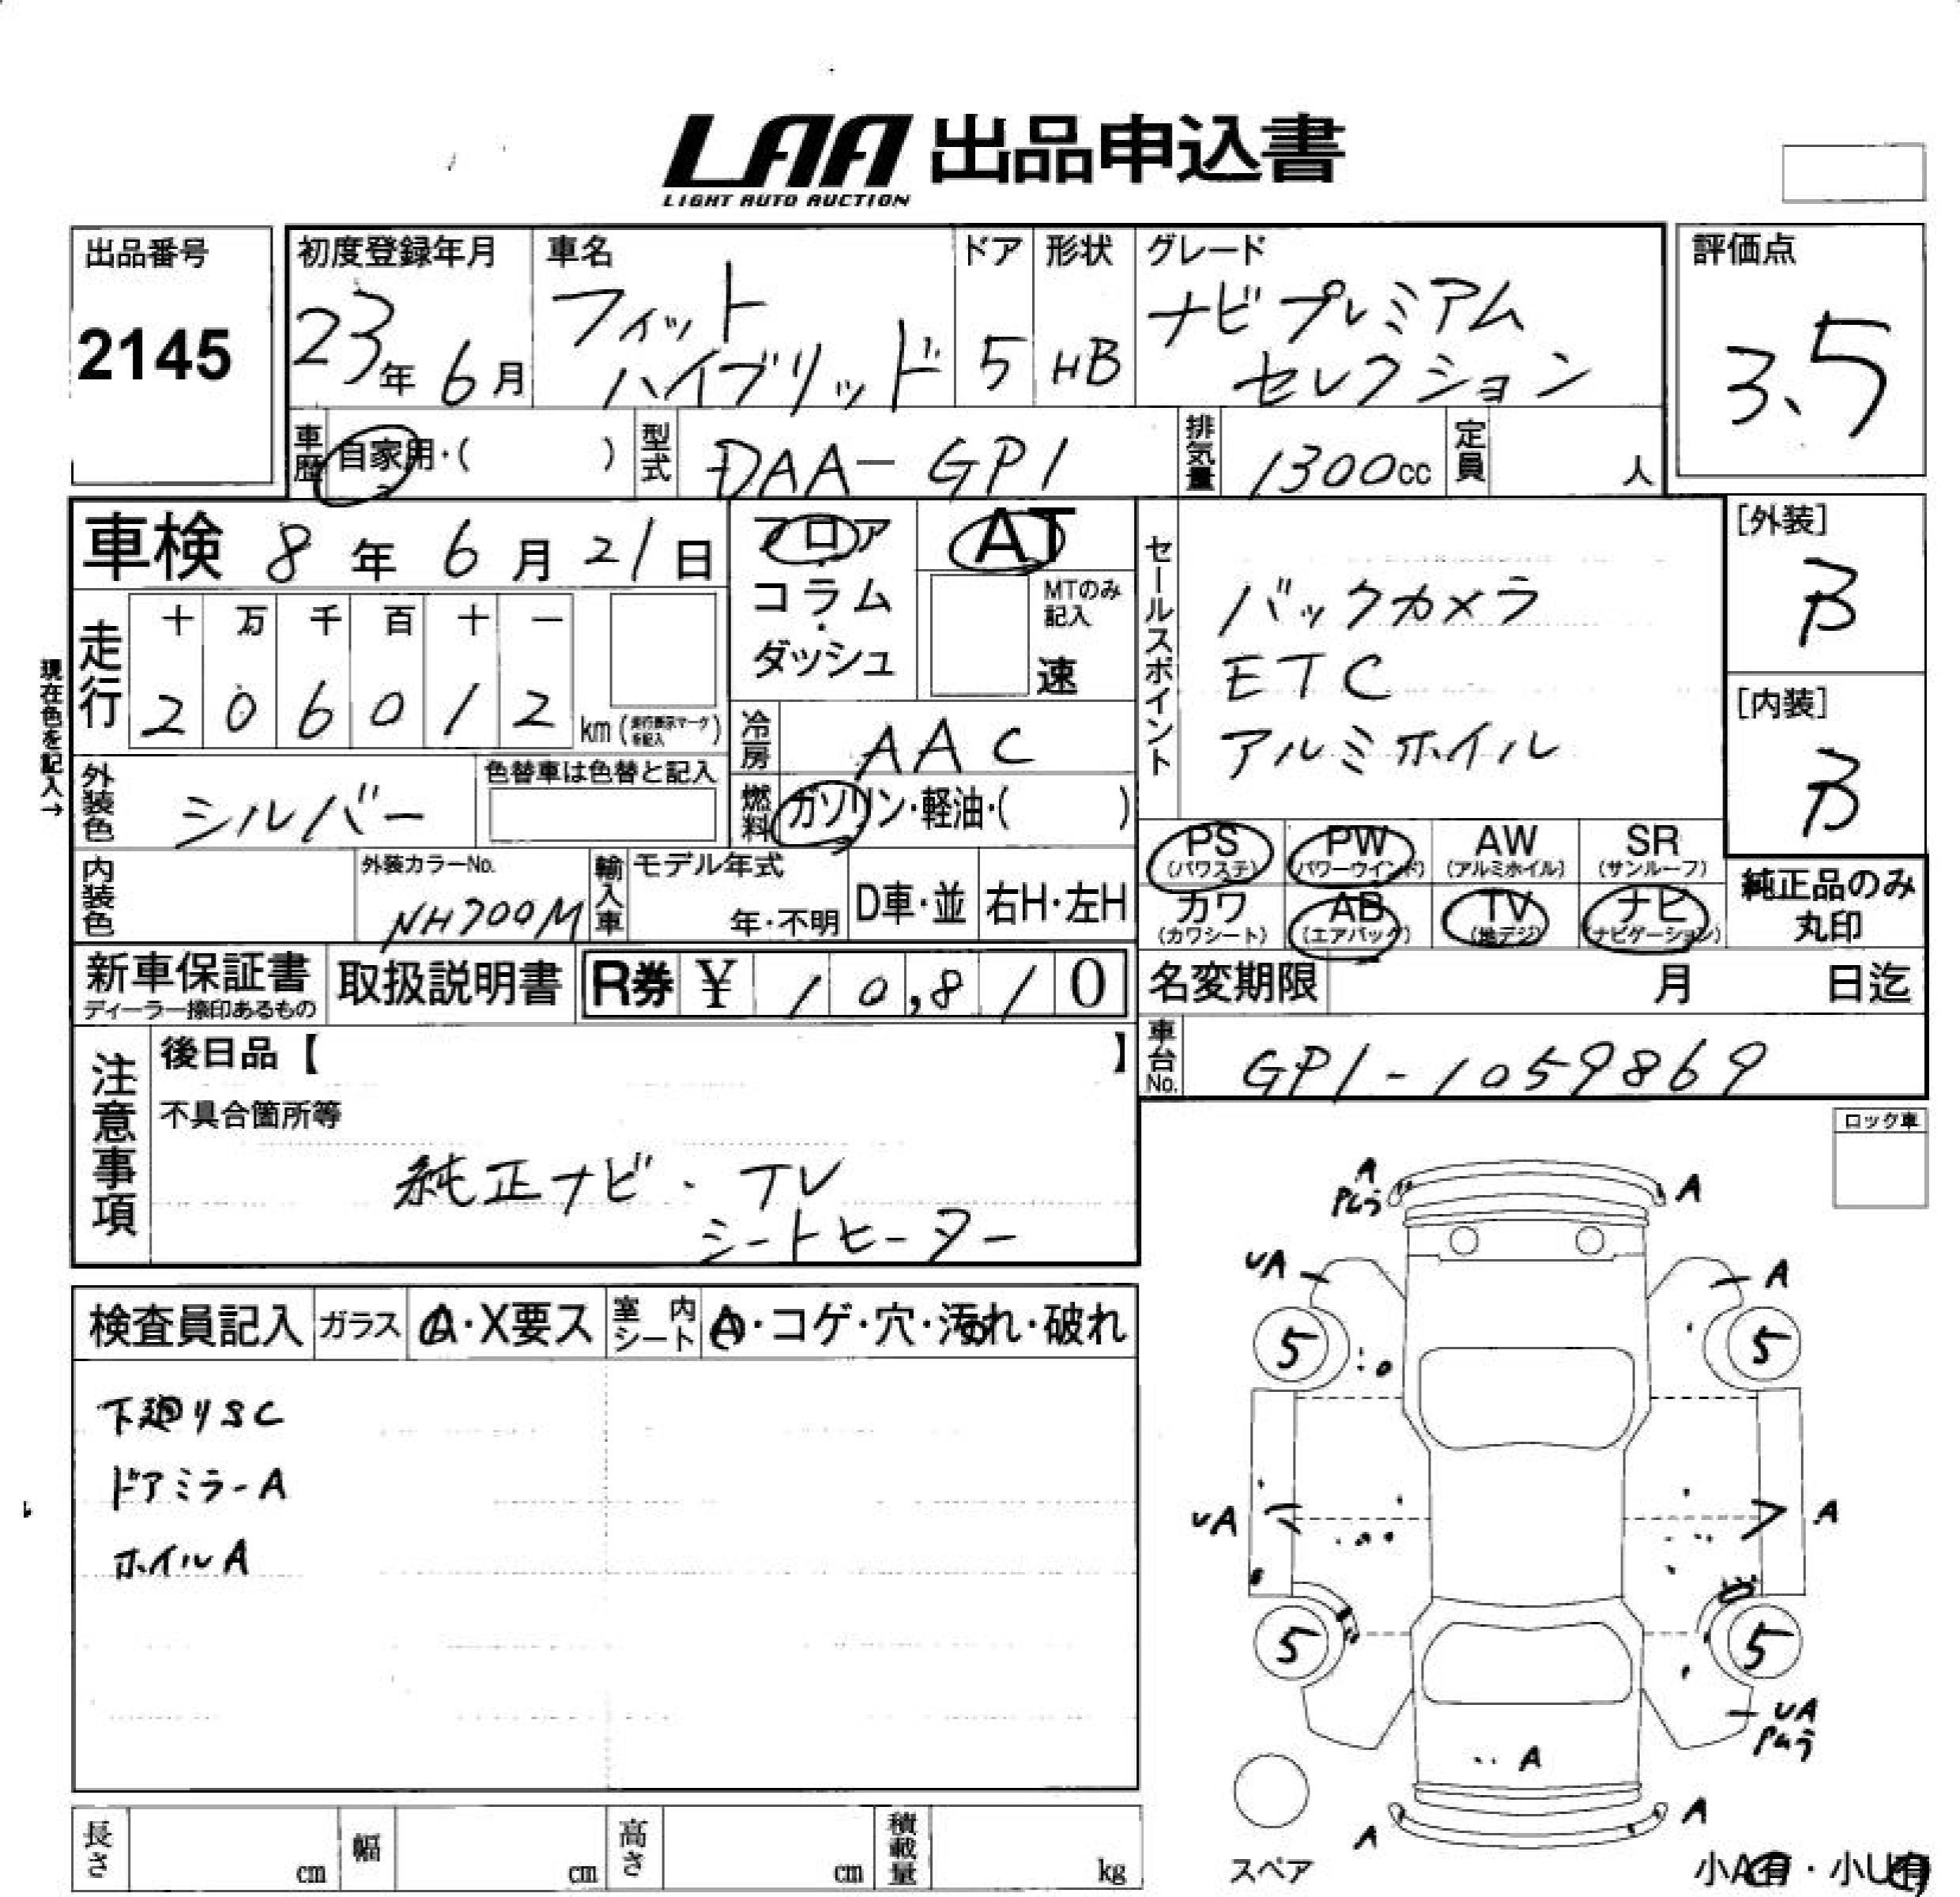 LAA 出品申込書
LIGHT AUTO AUCTION
出品番号
2145
初度登録年月
23年 6月
車名
フィット
ハイブリッド
ドア
5
形状
HB
グレード
ナビプレミアム
セレクション
評価点
3.5
車歴 自家用・( )
型式 DAA-GP1
排気量 1300cc
定員 人
車検 8年 6月 21日
フロア
・
コラム
・
ダッシュ
AT
MTのみ
記入
速
セールスポイント
バックカメラ
ETC
アルミホイル
[外装]
B
[内装]
B
現在色を記入→
走行
十 万 千 百 十 一
2 0 6 0 1 2 km (走行表示マークを記入)
冷房 AAC
燃料 ガソリン・軽油・( )
外装色 シルバー
色替車は色替と記入
内装色
外装カラーNo.
NH700M
輸入車
モデル年式
年・不明
D車・並
右H・左H
PS (パワステ)
PW (パワーウインド)
AW (アルミホイル)
SR (サンルーフ)
カワ (カワシート)
AB (エアバック)
TV (地デジ)
ナビ (ナビゲーション)
純正品のみ
丸印
新車保証書
ディーラー捺印あるもの
取扱説明書
R券 ¥ 10,810
名変期限 月 日迄
車台No. GP1-1059869
注意事項
後日品【 】
不具合箇所等
純正ナビ・TV
シートヒーター
ロック車
検査員記入
ガラス A・X要ス
室内シート A・コゲ・穴・汚れ・破れ
下廻りSC
ドアミラーA
ホイルA
A
Pムラ
A
UA
A
5
5
UA
A
5
5
UA
Pムラ
A
A
A
スペア
小A有・小U有
長さ cm
幅 cm
高さ cm
積載量 kg